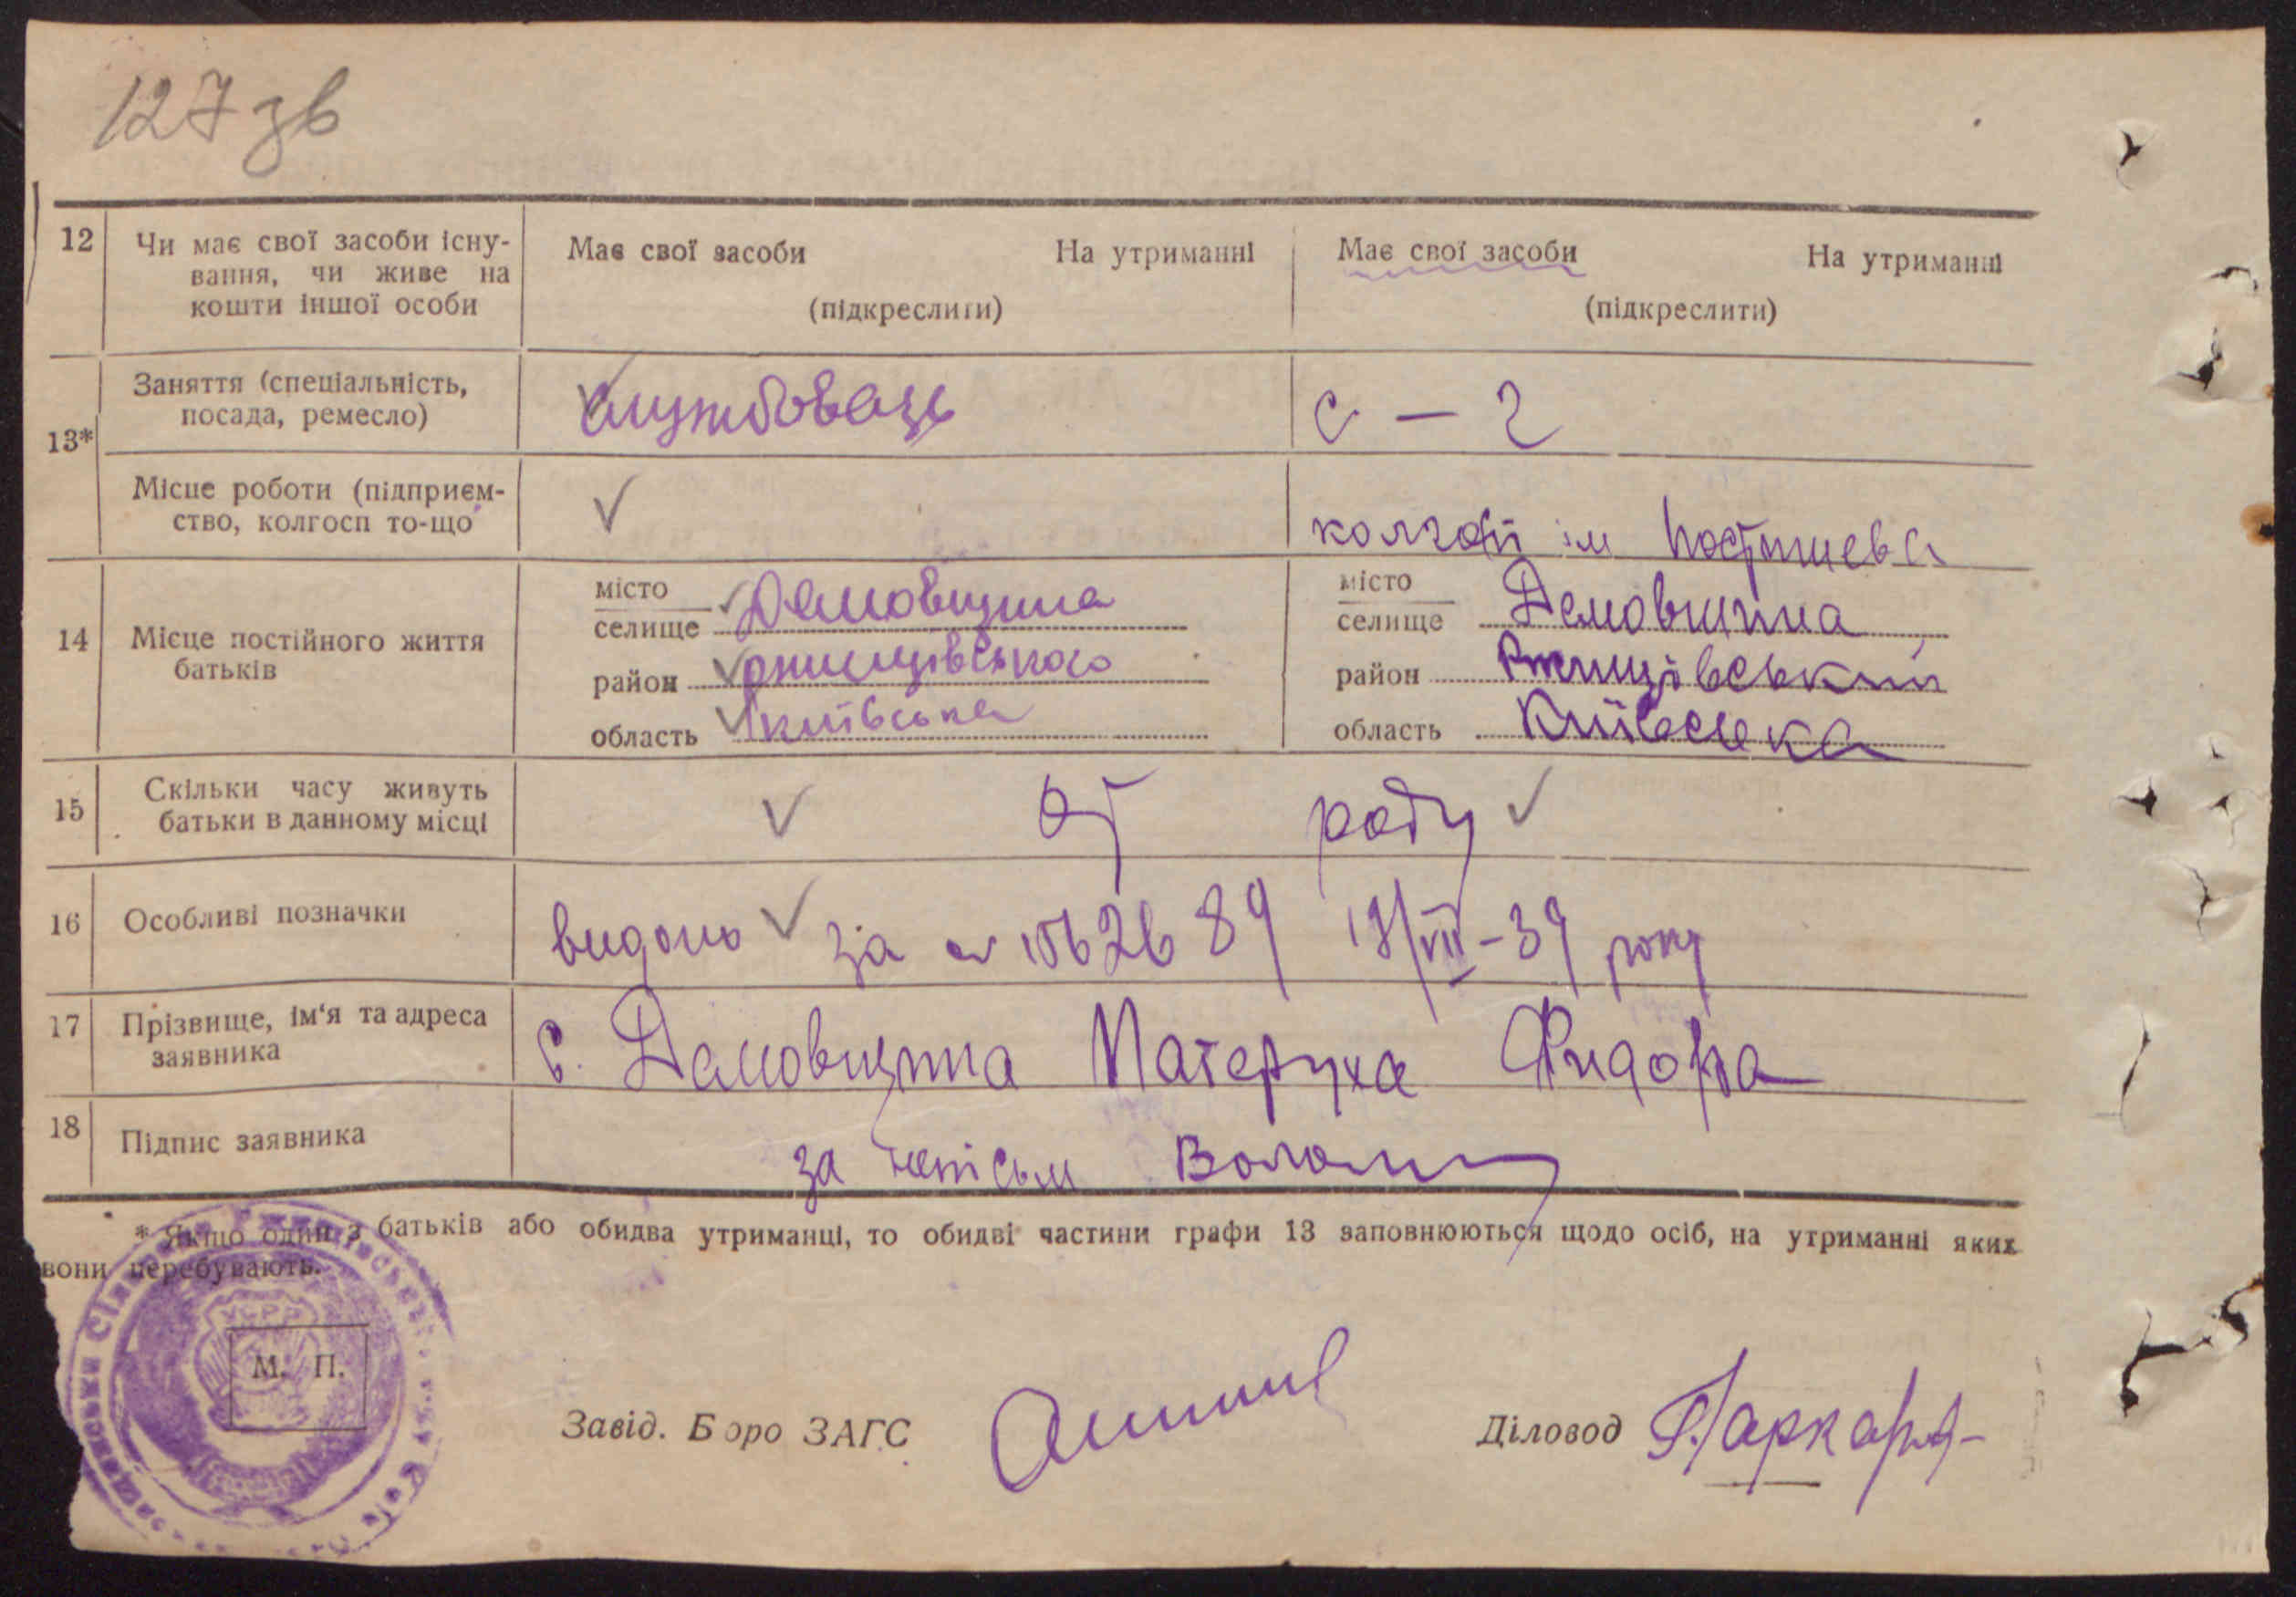 127 зв
12 Чи має свої засоби існу- Має свої засоби На утриманні Має свої засоби На утриманні
вання, чи живе на
кошти іншої особи (підкреслити) (підкреслити)
Заняття (спеціальність, службовець с — г
посада, ремесло)
13*
Місце роботи (підприєм-
ство, колгосп то-що колгосп ім Постишева
місто місто
селище Демовщина селище Демовщина
14 Місце постійного життя
батьків
район ржищівського район Ржищівський
область київська область Київська
15 Скільки часу живуть От роду
батьки в данному місці
16 Особливі позначки видано за 39 року
17 Прізвище, ім'я та адреса с. Демовщина Матеруха Фидора
заявника
18 Підпис заявника за
* Якщо один з батьків або обидва утриманці, то обидві частини графи 13 заповнюються щодо осіб, на утриманні яких
вони перебувають.
УСРР
М. П.
Завід. Бюро ЗАГС Діловод